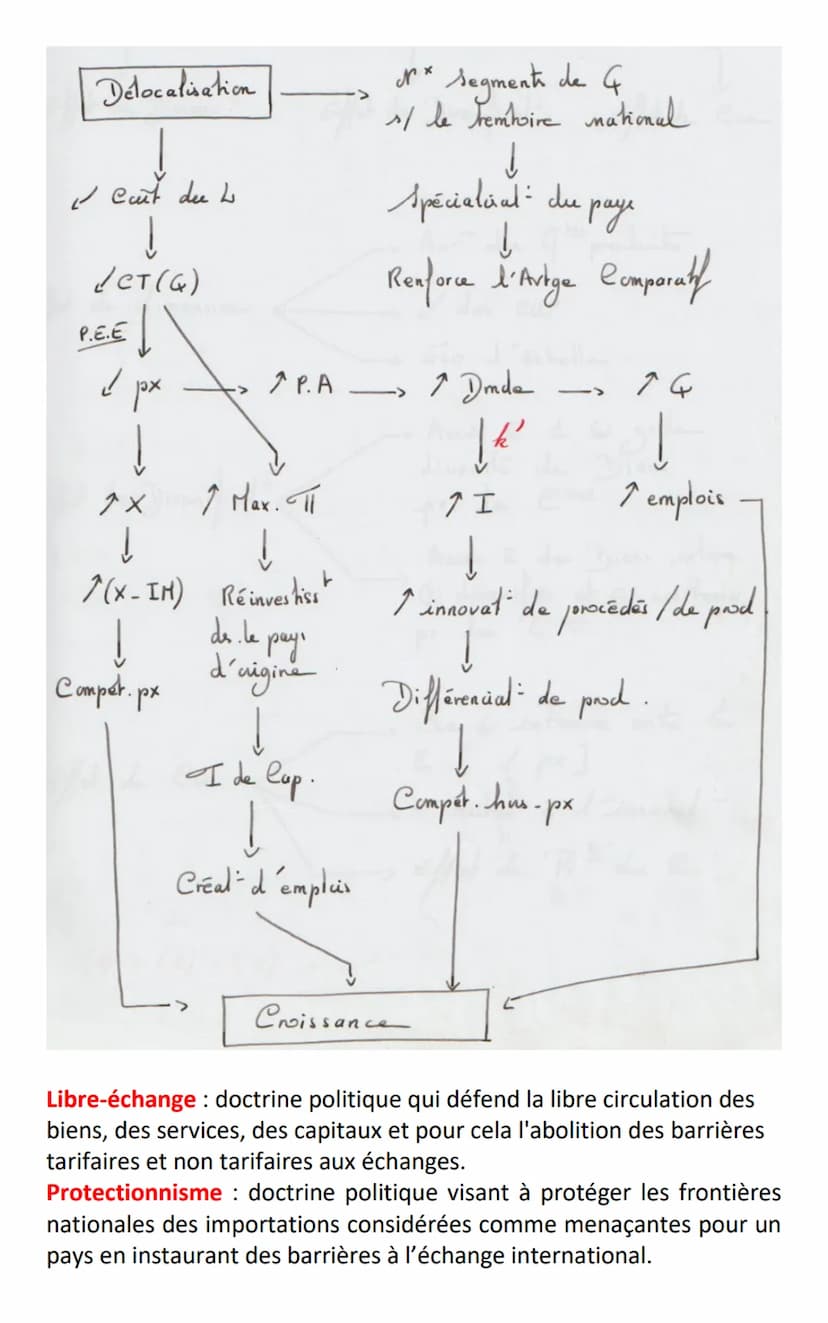 Délocalisation
Nx segments de Q
s/ le territoire national
↙ Coût du L
Spécialisat° du pays
↙ CT(Q)
Renforce l'Avtge Comparatif
P.E.E
↙ px
↗ P.A
↗ Dmde
↗ Q
k'
↗ X
↗ Max. π
↗ I
↗ emplois
↗(X - IM)
Réinvestisst
ds le pays
d'origine
↗ innovat° de procédés / de prod
Compét. px
Différenciat° de prod.
I de Cap.
Compét. hors-px
Créat° d'emplois
Croissance
Libre-échange : doctrine politique qui défend la libre circulation des
biens, des services, des capitaux et pour cela l'abolition des barrières
tarifaires et non tarifaires aux échanges.
Protectionnisme : doctrine politique visant à protéger les frontières
nationales des importations considérées comme menaçantes pour un
pays en instaurant des barrières à l’échange international.